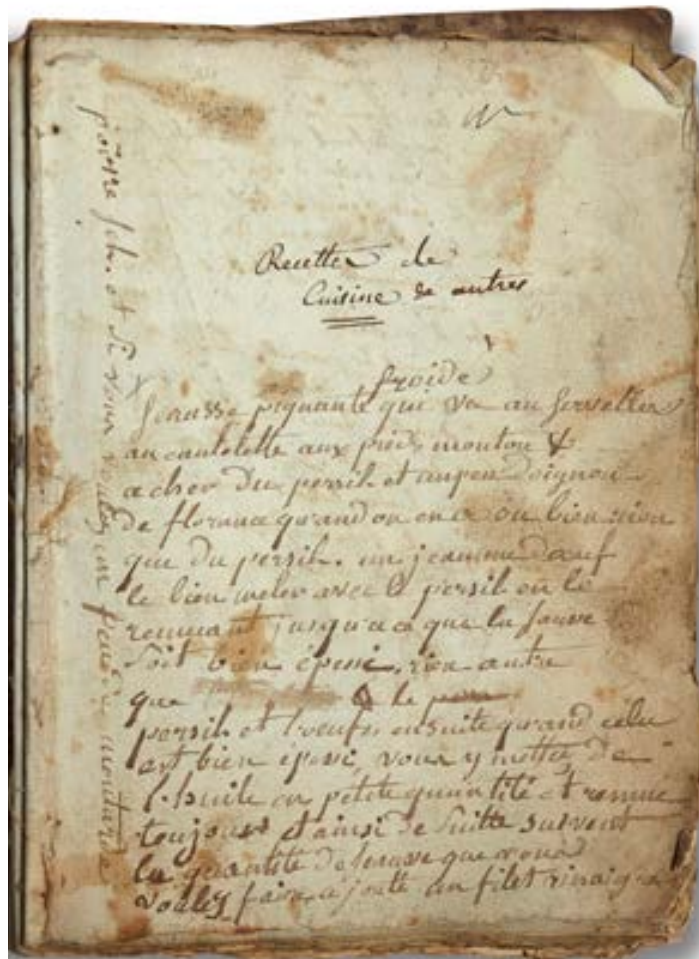 Recettes de
Cuisine & autres
froide
Sausse piquante qui va au servelles
au cautelette aux pieds mouton &
acher du persil et un peu doignon
de florance quand on en a ou bien rien
que du persil. un jeaumme dœuf
le bien meler avec le persil en le
remuant jusqu'a ce que la sauve
soit bien épessi, rien autre
que le
persil et l'oeufs ensuite quand cela
est bien épessi, vous y mettez de
l'huile en petite quantité et remue
toujours et ainsi de suitte suivent
la quantité de sausse que vous
voulez faire ajoutte un filet vinaigre
poivre sel. et si vous voulez un peu de moutarde